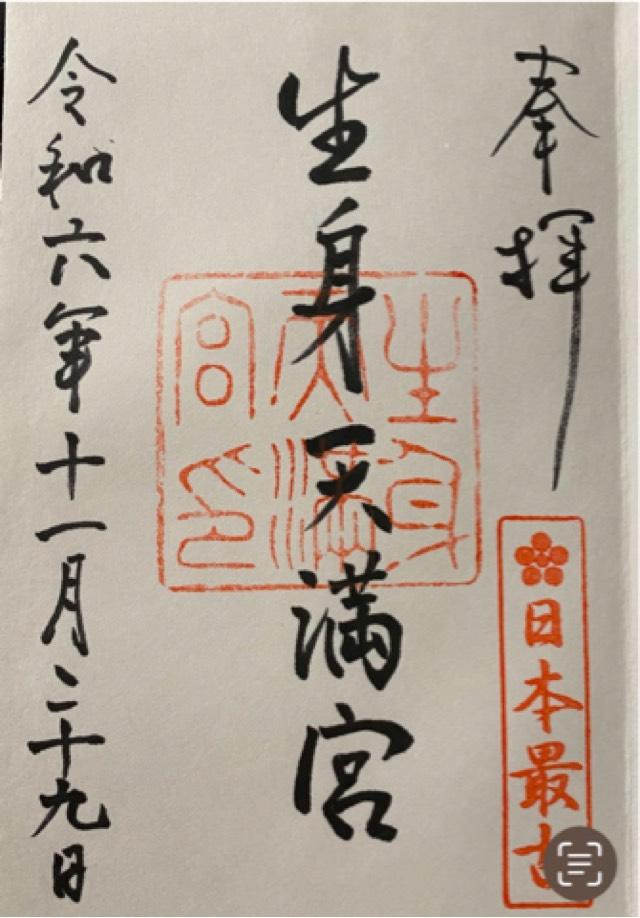 奉拝
日本最古
生身天満宮
生身天満宮印
令和六年十一月二十九日